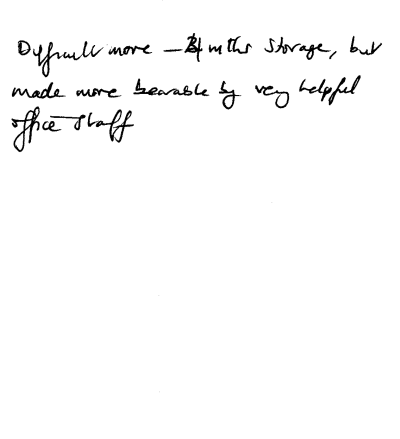 Difficult move — 4 mths storage, but
made more bearable by very helpful
office staff